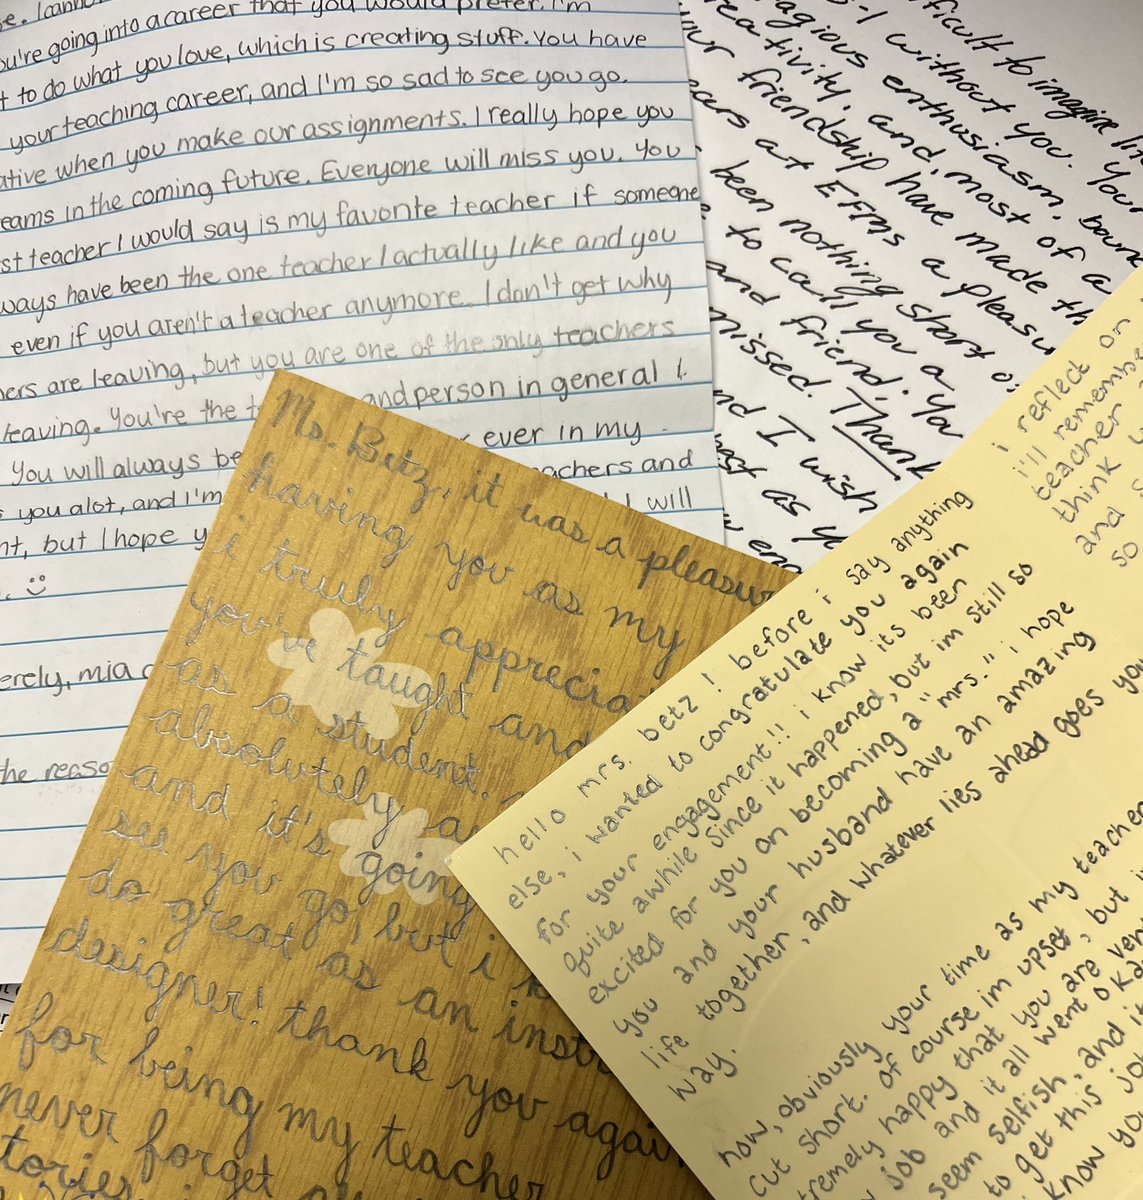 e. I cannot
a career that you would prefer. I'm
you're going into
t to do what you love, which is creating stuff. You have
your teaching career, and I'm so sad to see you go.
ative when you make our assignments. I really hope you
eams in the coming future. Everyone will miss you. You
st teacher I would say is my favorite teacher if someone
ways have been the one teacher I actually like and you
even if you aren't a teacher anymore. I don't get why
hers are leaving, but you are one of the only teachers
leaving. You're the t and person in general I
You will always be ever in my
s you alot, and I'm achers and
nt, but I hope y I will
erely, mia
he reaso
fficult to imagine li
without you. Your
agious enthusiasm, boun
reativity, and, most of a
ur friendship have made th
ears at EFMS a pleasu
been nothing short o
to call you a
and friend; You
missed. Thank
nd I wish
best as yo
Ms. Betz, it was a pleasur
having you as my
i truly apprecia
you've taught and
as a student.
absolutely a
and it's going
see you go, but i
do great as an inst
designer! thank you again
for being my teacher
never forget
tories
hello mrs. betz! before i say anything
else, i wanted to congratulate you again
for your engagement!! i know its been
quite awhile since it happened, but im still so
excited for you on becoming a "mrs." i hope
you and your husband have an amazing
life together, and whatever lies ahead goes you
way.
now, obviously your time as my teacher
cut short. of course im upset, but i
tremely happy that you are ver
job and it all went oka
seem selfish, and i
to get this jo
know yo
i reflect on
i'll remember
teacher
think
and
so